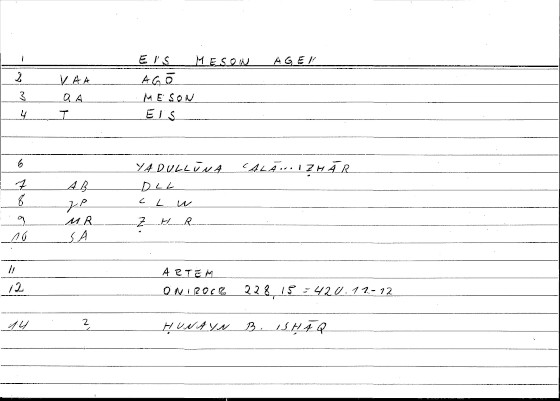 1 EIS MESON AGEIN
2 VAA AGŌ
3 QA MESON
4 T EIS
6 YADULLŪNA ʿALĀ...IẒHĀR
7 AB DLL
8 JP ʿLW
9 MR ẒHR
10 SA
11 ARTEM
12 ONIROCR 228,15=420.11-12
14 2 ḤUNAYN B. ISḤĀQ